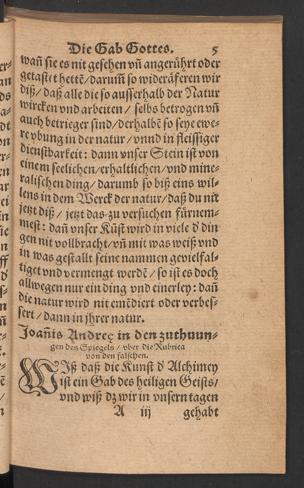 Die Gab Gottes. 5
wañ sie es nit gesehen vñ angerührt oder
getastet hettē/ darum̃ so wideräferen wir
diß/ daß alle die so ausserhalb der Natur
wircken vnd arbeiten/ selbs betrogen vñ
auch betrieger sind/ derhalbē so seye ewe-
re vbung in der natur/ vnnd in fleissiger
dienstbarkeit: dann vnser Stein ist von
einem seelichen/ erhaltlichen/ vnd mine-
ralischen ding/ darumb so biß eins wil-
lens in dem Werck der natur/ daß du nit
jetzt diß/ jetzt das zu versuchen fürnem-
mest: dañ vnser Kūst wird in viele d' din
gen nit vollbracht/ vñ mit was weiß vnd
in was gestallt seine nammen gevielfal-
tiget vnd vermengt werdē/ so ist es doch
allwegen nur ein ding vnd einerley: dañ
die natur wird nit emēdiert oder verbes-
sert/ dann in jhrer natur.
Joañis Andreę in den zuthuun-
gen des Spiegels/ vber die Rubrica
von den falschen.
Wiß daß die Kunst d' Alchimey
ist ein Gab des heiligen Geists/
vnd wiß dz wir in vnsern tagen
A iij gehabt